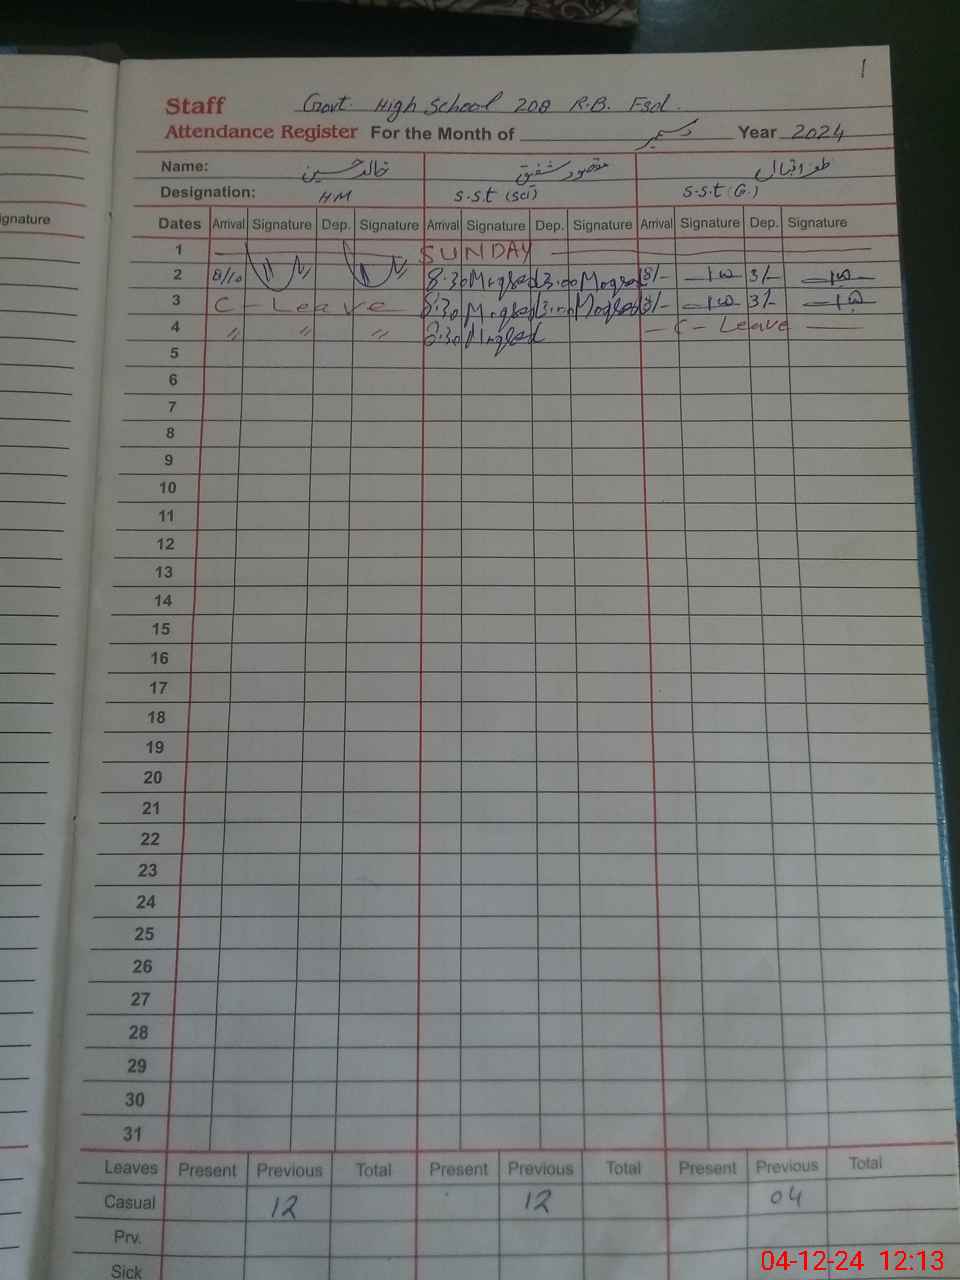 1
Staff Govt. High School 208 R.B. Fsd.
Attendance Register For the Month of دسمبر Year 2024
Name: خالد حسین مقصود شفیق ظفر اقبال
Designation: HM S.S.t (Sci) S.S.t (G.)
ignature
Dates Arrival Signature Dep. Signature Arrival Signature Dep. Signature Arrival Signature Dep. Signature
1 SUNDAY
2 8/10 8:30 Maqsood 3:00 Maqsood 8/- 3/-
3 C - Leave 8:30 Maqsood 3:00 Maqsood 8/- 3/-
4 " " " 8:30 Maqsood - C - Leave
5
6
7
8
9
10
11
12
13
14
15
16
17
18
19
20
21
22
23
24
25
26
27
28
29
30
31
Leaves Present Previous Total Present Previous Total Present Previous Total
Casual 12 12 04
Prv.
Sick
04-12-24 12:13